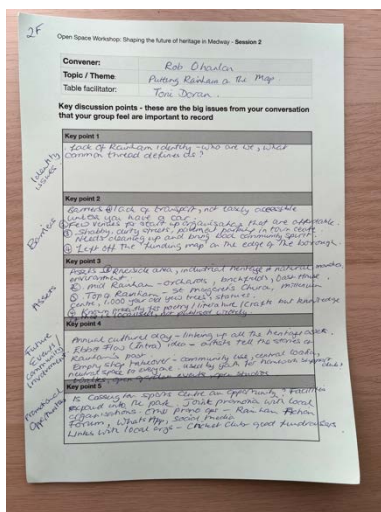 2F
Open Space Workshop: Shaping the future of heritage in Medway - Session 2
Convener: Rob
Topic / Theme Putting Rainham on the Map
Table facilitator: Toni Doran
Key discussion points - these are the big issues from your conversation
that your group feel are important to record
Key point 1
Identity issues
Lack of Rainham identity - who are we, what
common thread defines us?
Key point 2
Barriers
Barriers ① lack of transport, not easily accessible
unless you have a car
② Few venues for start up organisations that are affordable
③ Shabby, dirty street, in town centre.
Needs cleaning up and bring back community spirit
④ Left off the funding map on the edge of the borough.
Key point 3
Assets
Assets ① Riverside area, industrial heritage + natural
environment
② Mid Rainham - orchards, brickfields,
③ Top of Rainham - St Margaret's Church, museum
Centre, 1,000 year old yew trees, stables.
④ literature, crafts but knowledge
Key point 4
Future Events / Community Involvement
Annual cultural day - linking up all the heritage assets.
Ebb + Flow (Intra) idea - artists tell the stories on
Rainham's past
Empty shop takeover - community use, central location,
neutral space to everyone. used by
open garden events, open studios
Key point 5
Promotional Opportunities
Is Cossington sports centre an opportunity? Facilities
expand into the park. Joint promotion with local
organisations - Rainham Action
Forum, WhatsApp, social media
Links with local orgs - Cricket Club good fundraisers